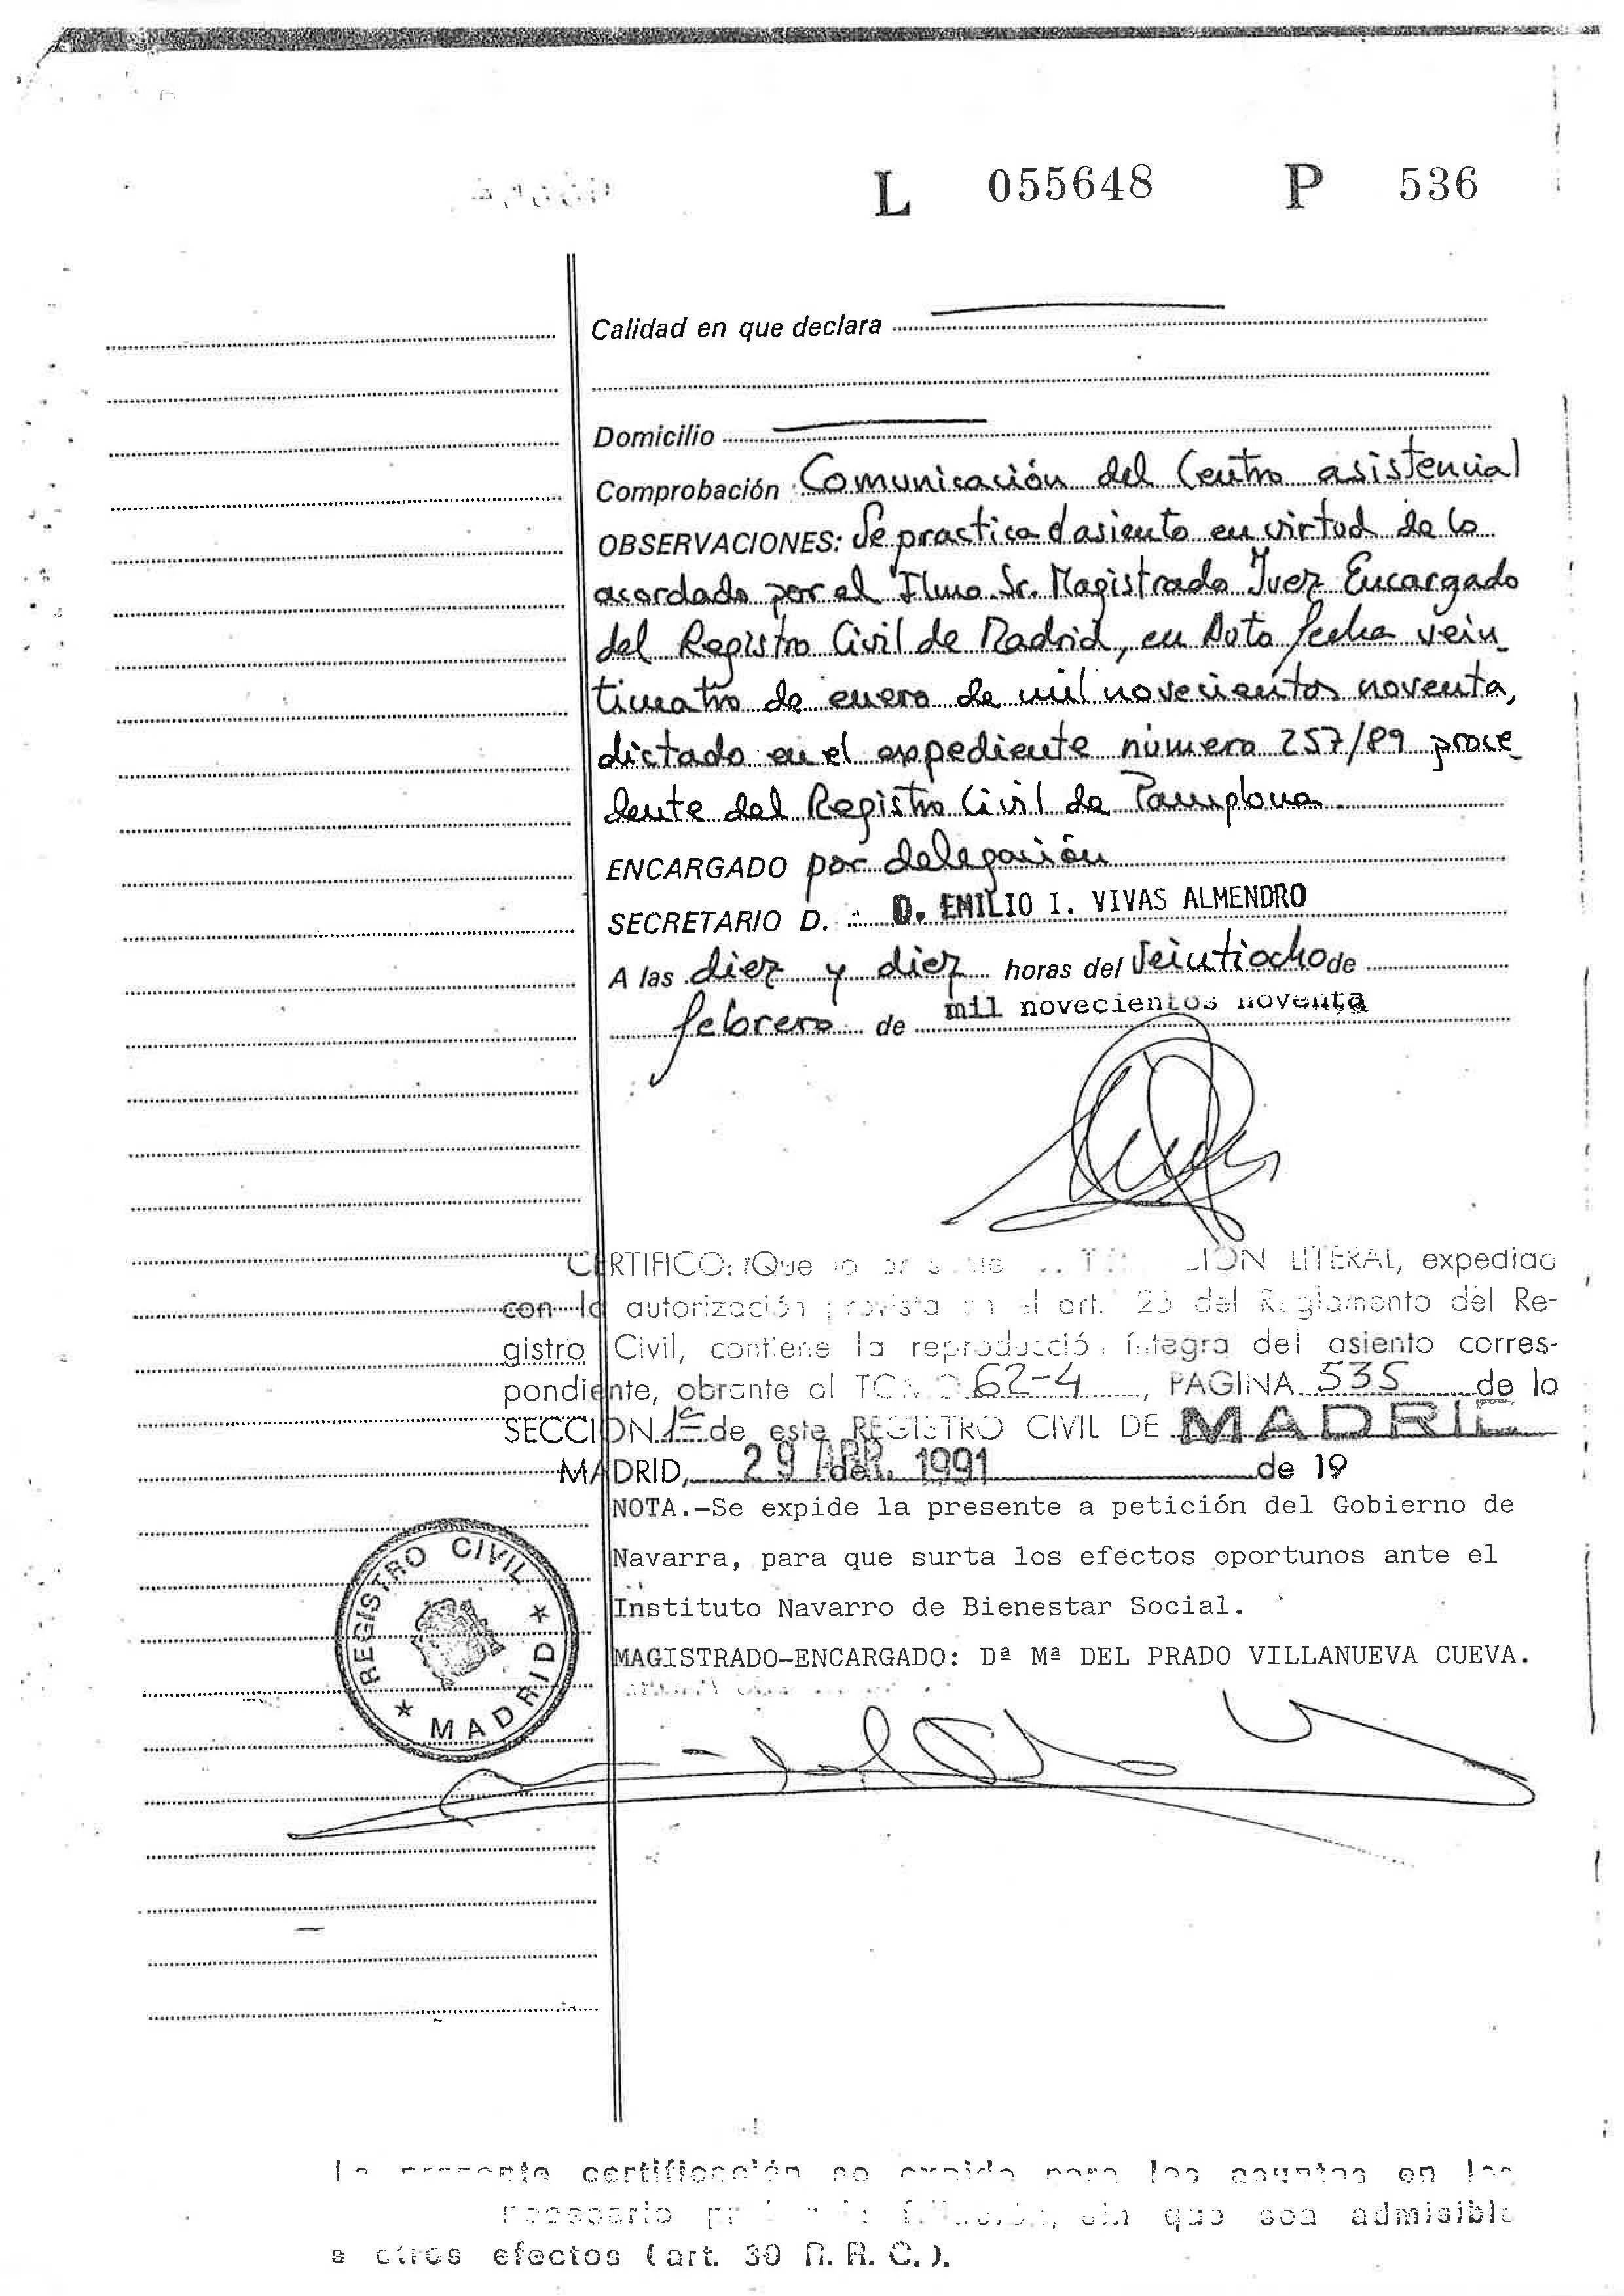 L 055648 P 536
Calidad en que declara
Domicilio
Comprobación Comunicación del Centro asistencial
OBSERVACIONES: Se practica el asiento en virtud de lo
acordado por el Ilmo. Sr. Magistrado Juez Encargado
del Registro Civil de Madrid, en Auto fecha vein
ticuatro de enero de mil novecientos noventa,
dictado en el expediente número 257/89 proce
dente del Registro Civil de Pamplona.
ENCARGADO por delegación
SECRETARIO D. D. EMILIO I. VIVAS ALMENDRO
A las diez y diez horas del Veintiocho de
febrero de mil novecientos noventa
CERTIFICO: Que LITERAL, expedida
con la autorización prevista en el art. del Reglamento del Re-
gistro Civil, contiene la reproducció íntegra del asiento corres-
pondiente, obrante al TOMO 62-4, PAGINA 535 de la
SECCION 1ª de este REGISTRO CIVIL DE MADRID
MADRID, 29 ABR. 1991 de 19
NOTA.-Se expide la presente a petición del Gobierno de
Navarra, para que surta los efectos oportunos ante el
Instituto Navarro de Bienestar Social.
MAGISTRADO-ENCARGADO: Dª Mª DEL PRADO VILLANUEVA CUEVA.
REGISTRO CIVIL * MADRID *
La presente certificación se expide para los asuntos en los
necesario sin que sea admisible
a otros efectos (art. 30 R. R. C.).